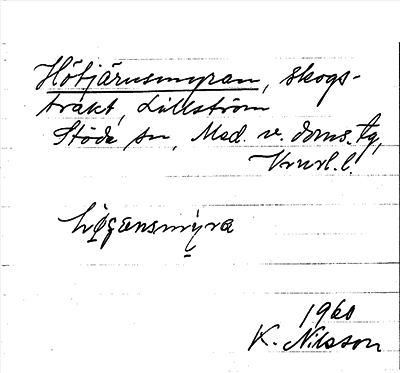 Hötjärnsmyran, skogs-
trakt, Lillström
Stöde sn, Med. v. doms. tg,
Vnrl. l.
1960
K. Nilsson